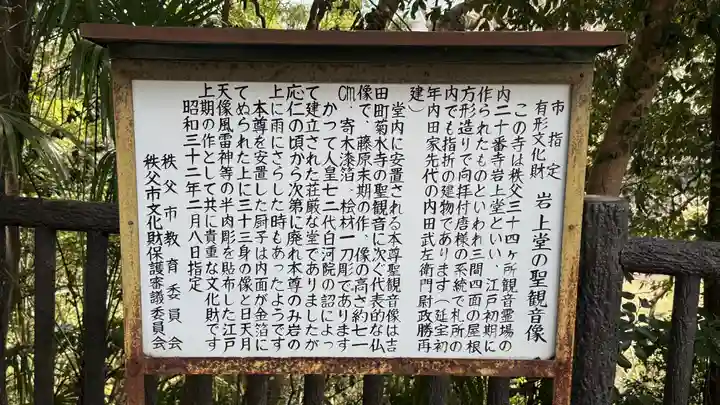 市指定
有形文化財 岩上堂の聖観音像
この寺は秩父三十四ヶ所観音霊場の
内二十番寺岩上堂といい、江戸初期に
作られたものといわれ三間四面の屋根
方形造りで向拝付唐様の系統で札所の
内でも指折の建物であります(延宝初
年内田家先代の内田武左衛門尉政勝再
建)
堂内に安置される本尊聖観音像は吉
田町菊水寺の聖観音に次ぐ代表的な仏
像で、藤原末期の作、像の高さ約七一
cm・寄木漆箔、桧材一刀彫であります
かつて人皇七二代白河院の詔によっ
て建立された荘厳な堂でありましたが
応仁の頃から次第に廃れ本尊のみ岩の
上に雨にさらした時もあったようです
本尊を安置した厨子は内面が金箔に
てぬられた上に三十三身の像と日天月
天像風雷神等の半肉彫を貼布した江戸
上期の作として共に貴重な文化財です
昭和三十二年二月八日指定
秩父市教育委員会
秩父市文化財保護審議委員会